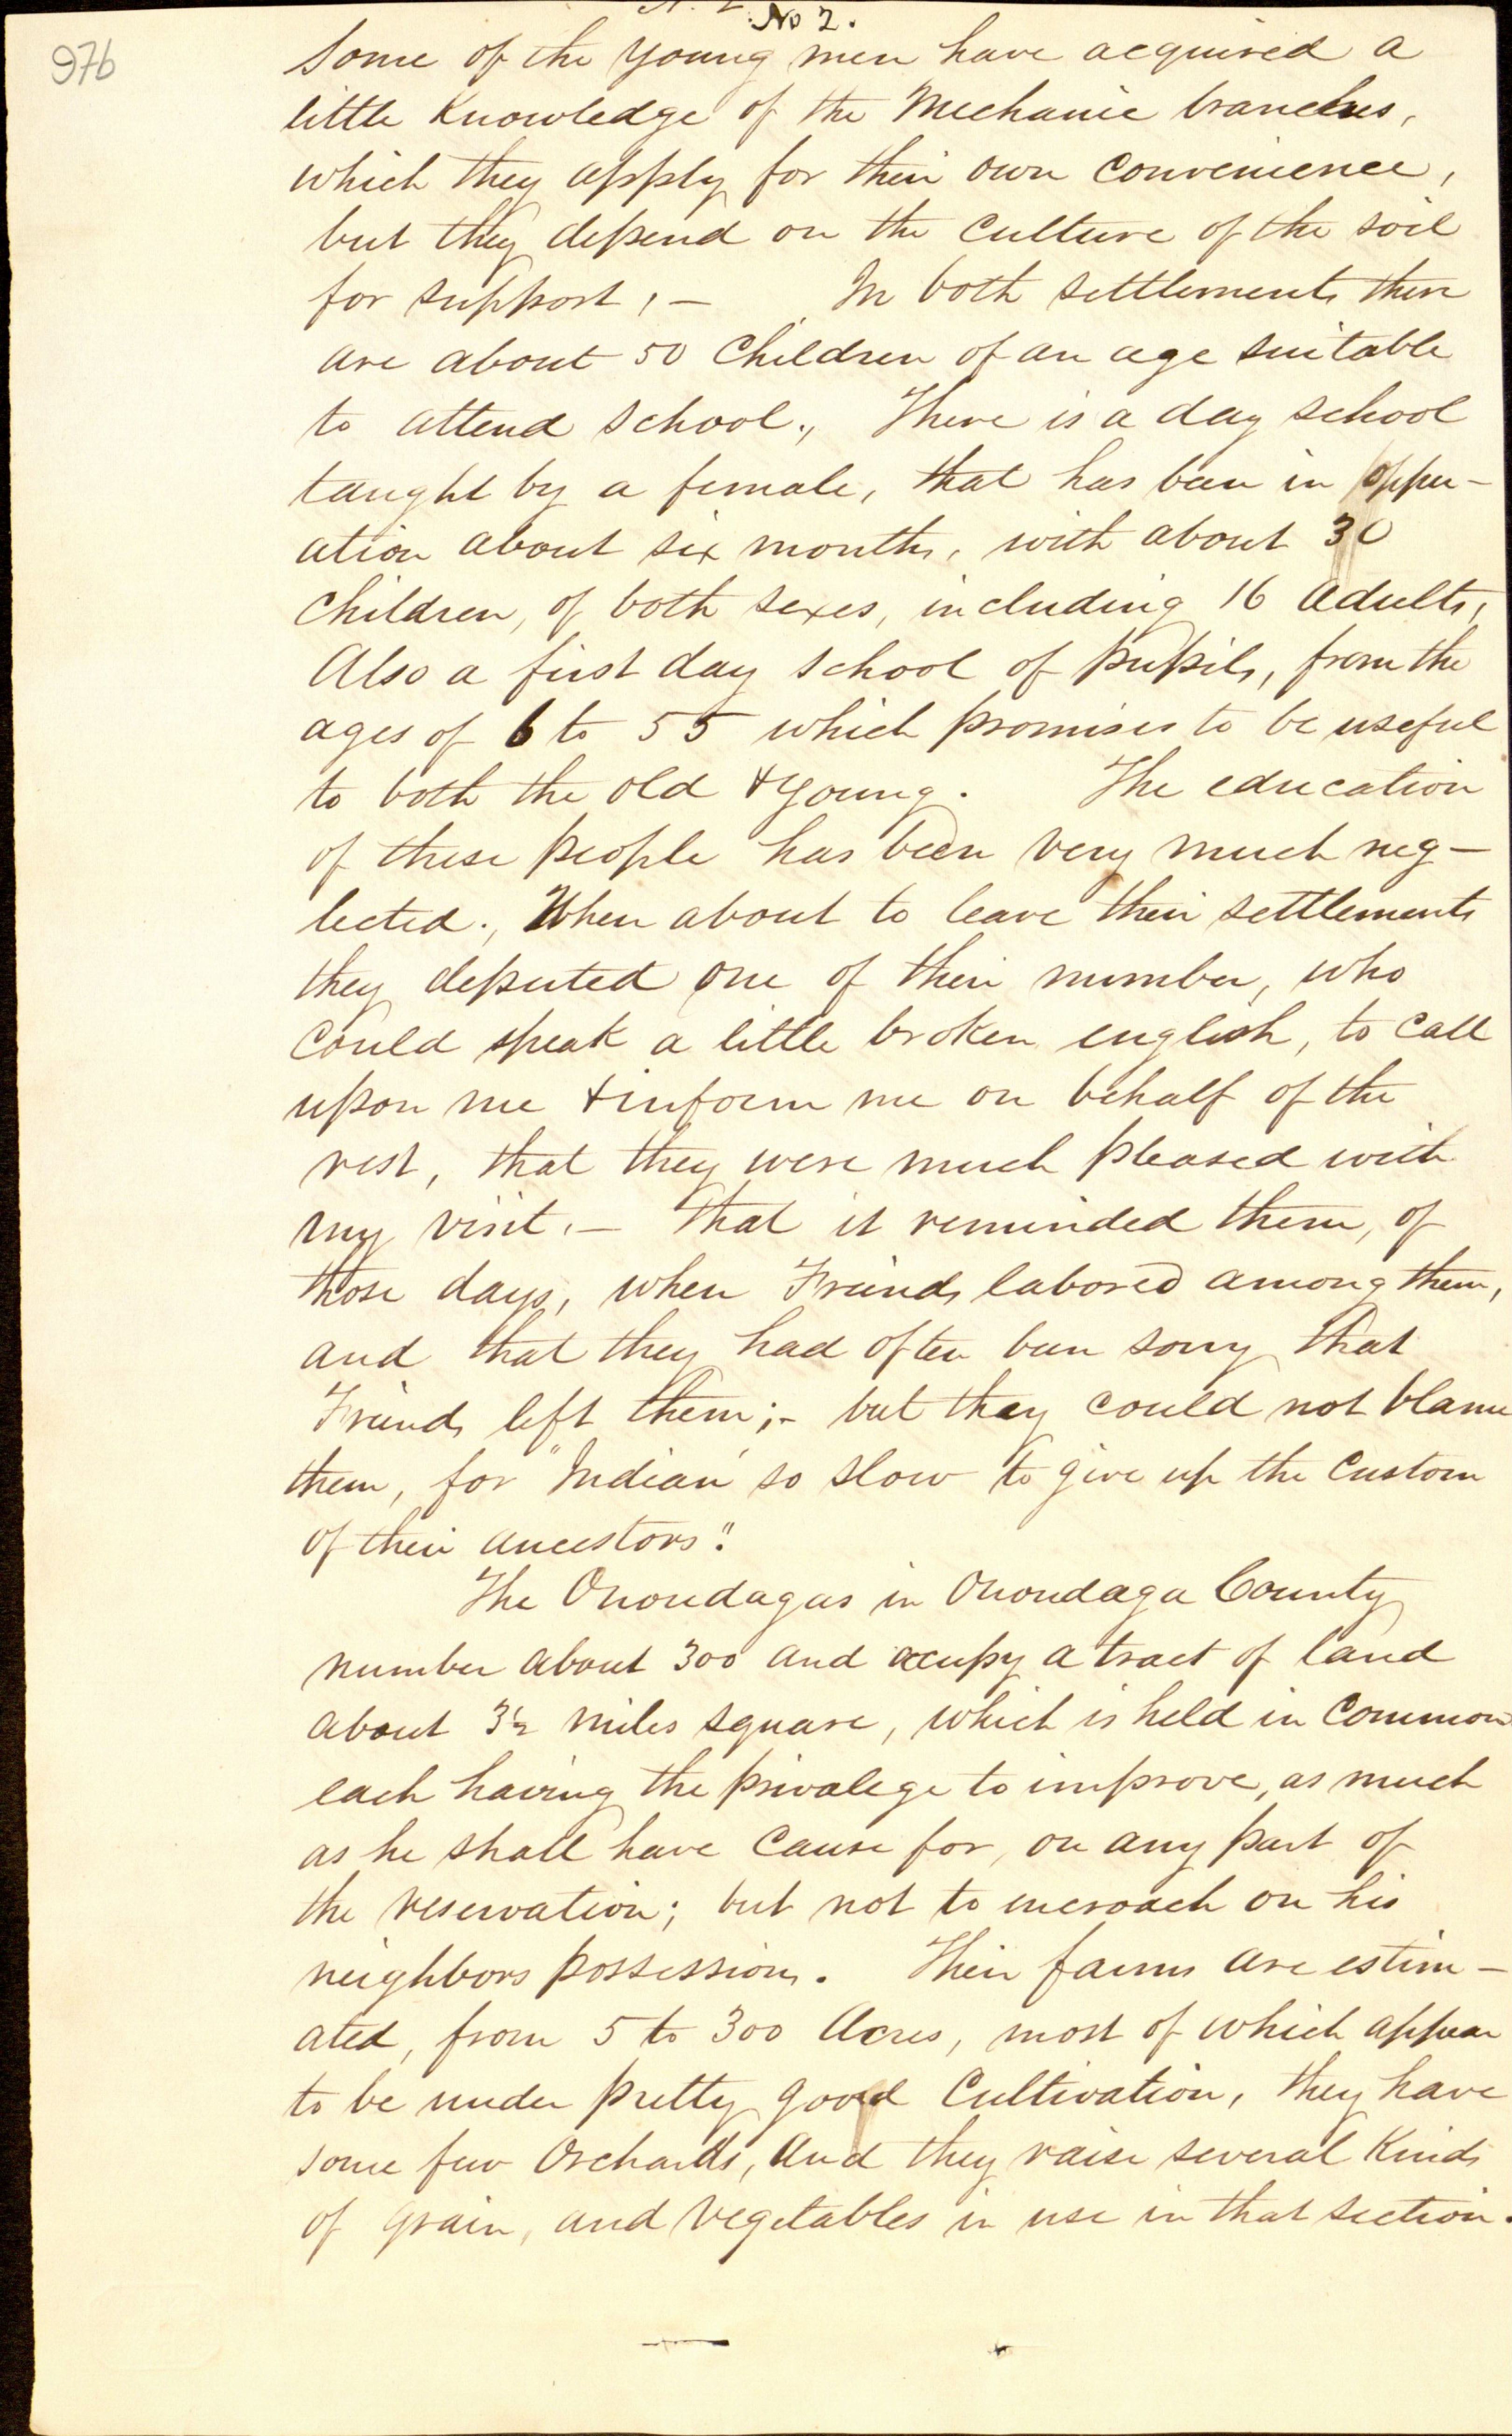 No 2.
976
Some of the young men have acquired a
little Knowledge of the Mechanic branches,
which they apply for their own convenience,
but they depend on the culture of the soil
for support, — In both settlements there
are about 50 Children of an age suitable
to attend school., There is a day school
taught by a female, that has been in opper-
ation about six months, with about 30
Children, of both sexes, including 16 adults,
Also a first day school of pupils, from the
ages of 6 to 55 which promises to be useful
to both the old & young. The education
of these people has been very much neg-
lected., When about to leave their settlements
they deputed one of their number, who
could speak a little broken english, to call
upon me & inform me on behalf of the
rest, that they were much pleased with
my visit. — that it reminded them, of
those days, when Friends labored among them,
and that they had often been sorry that
Friends left them; - but they could not blame
them, for "Indian so slow to give up the Custom
of their ancestors."
The Onondagas in Onondaga County
number about 300 and occupy a tract of land
about 3½ miles square, which is held in Common
each having the privalege to improve, as much
as he shall have Cause for, on any part of
the reservation; but not to encroach on his
neighbors possessions. Their farms are estim-
ated, from 5 to 300 Acres, most of which appear
to be under pretty good Cultivation, they have
some few Orchards, And they raise several Kinds
of grain, and vegetables in use in that section.